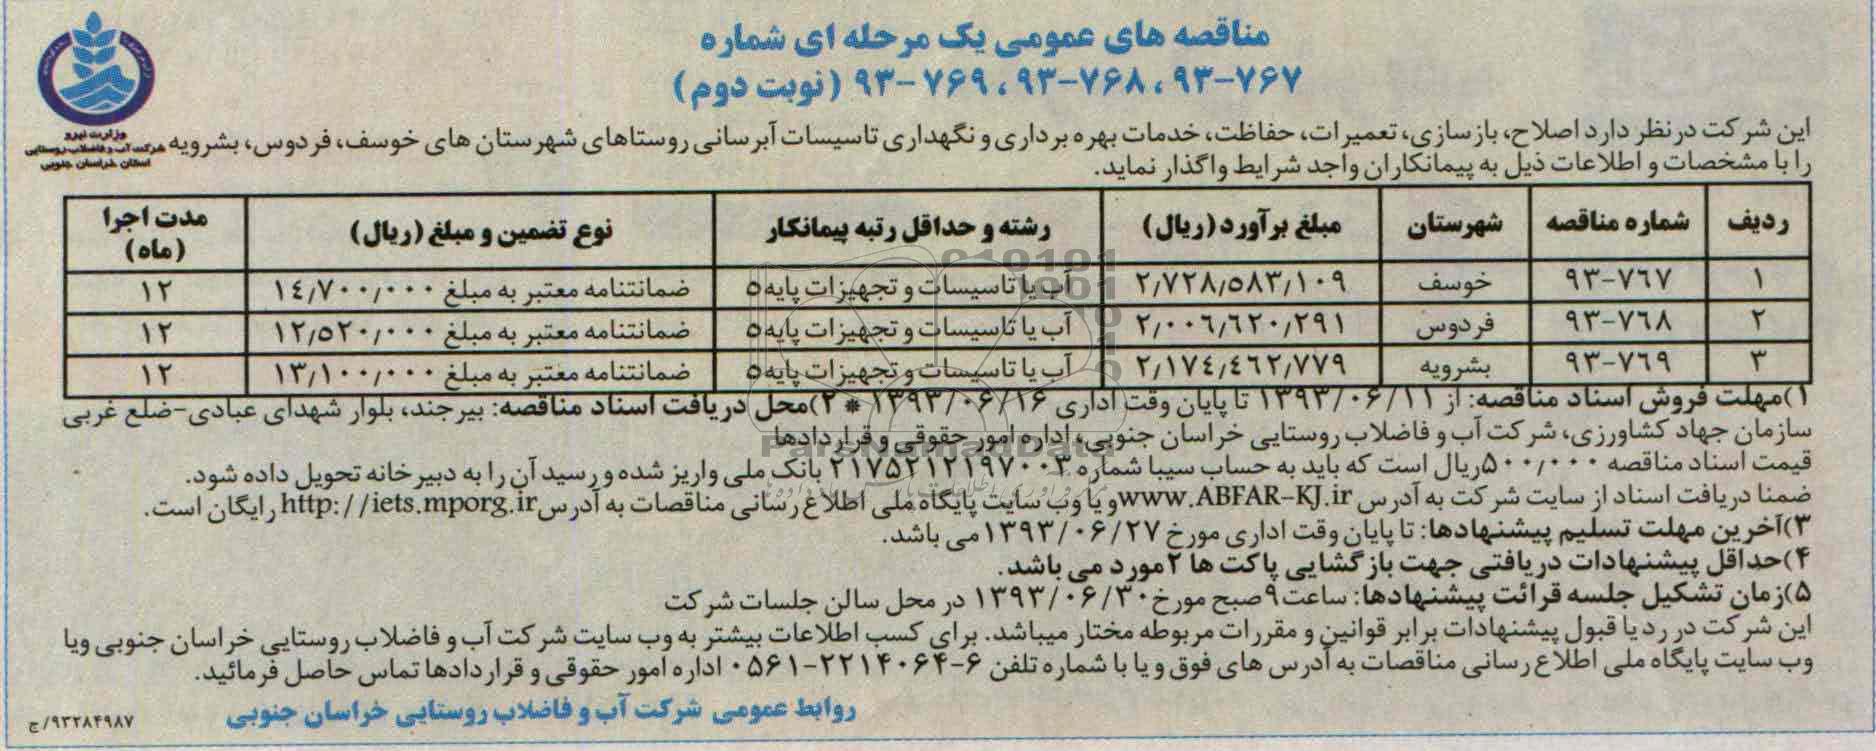 مناقصه های عمومی یک مرحله ای شماره
۹۳-۷۶۷ ، ۹۳-۷۶۸ ، ۹۳-۷۶۹ (نوبت دوم)
وزارت نیرو
شرکت آب و فاضلاب روستایی
استان خراسان جنوبی
این شرکت در نظر دارد اصلاح، بازسازی، تعمیرات، حفاظت، خدمات بهره برداری و نگهداری تاسیسات آبرسانی روستاهای شهرستان های خوسف، فردوس، بشرویه
را با مشخصات و اطلاعات ذیل به پیمانکاران واجد شرایط واگذار نماید.
ردیف شماره مناقصه شهرستان مبلغ برآورد (ریال) رشته و حداقل رتبه پیمانکار نوع تضمین و مبلغ (ریال) مدت اجرا (ماه)
۱ ۹۳-۷۶۷ خوسف ۲٫۷۲۸٫۵۸۳٫۱۰۹ آب یا تاسیسات و تجهیزات پایه۵ ضمانتنامه معتبر به مبلغ ۱۴٫۷۰۰٫۰۰۰ ۱۲
۲ ۹۳-۷۶۸ فردوس ۲٫۰۰۶٫۶۲۰٫۲۹۱ آب یا تاسیسات و تجهیزات پایه۵ ضمانتنامه معتبر به مبلغ ۱۲٫۵۲۰٫۰۰۰ ۱۲
۳ ۹۳-۷۶۹ بشرویه ۲٫۱۷۴٫۴۶۲٫۷۷۹ آب یا تاسیسات و تجهیزات پایه۵ ضمانتنامه معتبر به مبلغ ۱۳٫۱۰۰٫۰۰۰ ۱۲
۱)مهلت فروش اسناد مناقصه: از ۱۳۹۳/۰۶/۱۱ تا پایان وقت اداری ۱۳۹۳/۰۶/۱۶ * ۲)محل دریافت اسناد مناقصه: بیرجند، بلوار شهدای عبادی-ضلع غربی
سازمان جهاد کشاورزی، شرکت آب و فاضلاب روستایی خراسان جنوبی، اداره امور حقوقی و قراردادها
قیمت اسناد مناقصه ۵۰۰٫۰۰۰ریال است که باید به حساب سیبا شماره ۲۱۷۵۲۱۲۱۹۷۰۰۳ بانک ملی واریز شده و رسید آن را به دبیرخانه تحویل داده شود.
ضمنا دریافت اسناد از سایت شرکت به آدرس www.ABFAR-KJ.ir و یا وب سایت پایگاه ملی اطلاع رسانی مناقصات به آدرس http://iets.mporg.ir رایگان است.
۳)آخرین مهلت تسلیم پیشنهادها: تا پایان وقت اداری مورخ ۱۳۹۳/۰۶/۲۷می باشد.
۴)حداقل پیشنهادات دریافتی جهت بازگشایی پاکت ها ۲مورد می باشد.
۵)زمان تشکیل جلسه قرائت پیشنهادها: ساعت۹صبح مورخ ۱۳۹۳/۰۶/۳۰ در محل سالن جلسات شرکت
این شرکت در رد یا قبول پیشنهادات برابر قوانین و مقررات مربوطه مختار میباشد. برای کسب اطلاعات بیشتر به وب سایت شرکت آب و فاضلاب روستایی خراسان جنوبی ویا
وب سایت پایگاه ملی اطلاع رسانی مناقصات به آدرس های فوق و یا با شماره تلفن ۶-۲۲۱۴۰۶۴-۰۵۶۱ اداره امور حقوقی و قراردادها تماس حاصل فرمائید.
روابط عمومی شرکت آب و فاضلاب روستایی خراسان جنوبی
۹۳۲۸۴۹۸۷/ج
ParsNamadData